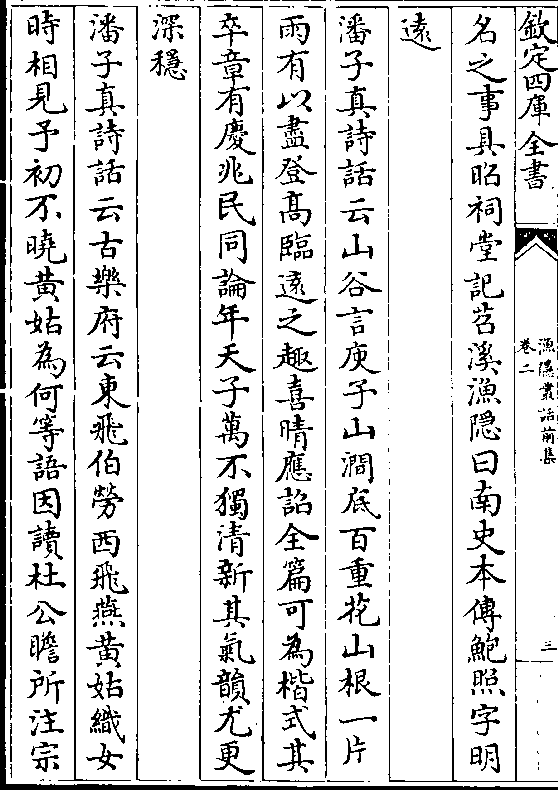 欽定四庫全書
漁隱叢話前集
卷二
三
名之事具昭祠堂記苕溪漁隐曰南史本傳鮑照字明
逺
潘子真詩話云山谷言庾子山澗底百重花山根一片
雨有以盡登髙臨逺之趣喜晴應詔全篇可為楷式其
卒章有慶兆民同論年天子萬不獨清新其氣韻尤更
深穩
潘子真詩話云古樂府云東飛伯勞西飛燕黄姑織女
時相見予初不曉黄姑為何等語因讀杜公瞻所注宗